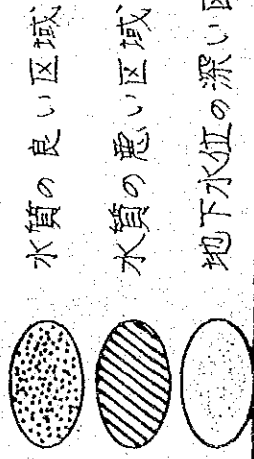 水質の良い区域
水質の悪い区域
地下水位の深い区